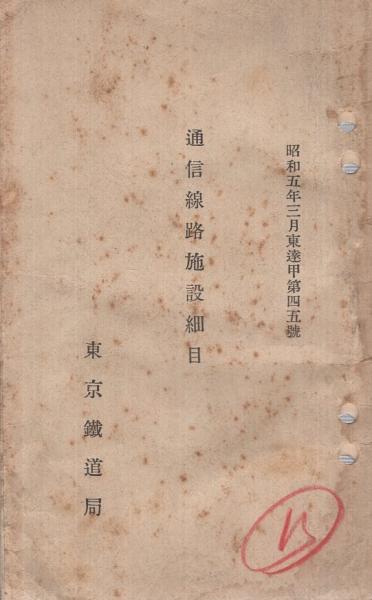 昭和五年三月東達甲第四五號
通信線路施設細目
東京鐵道局